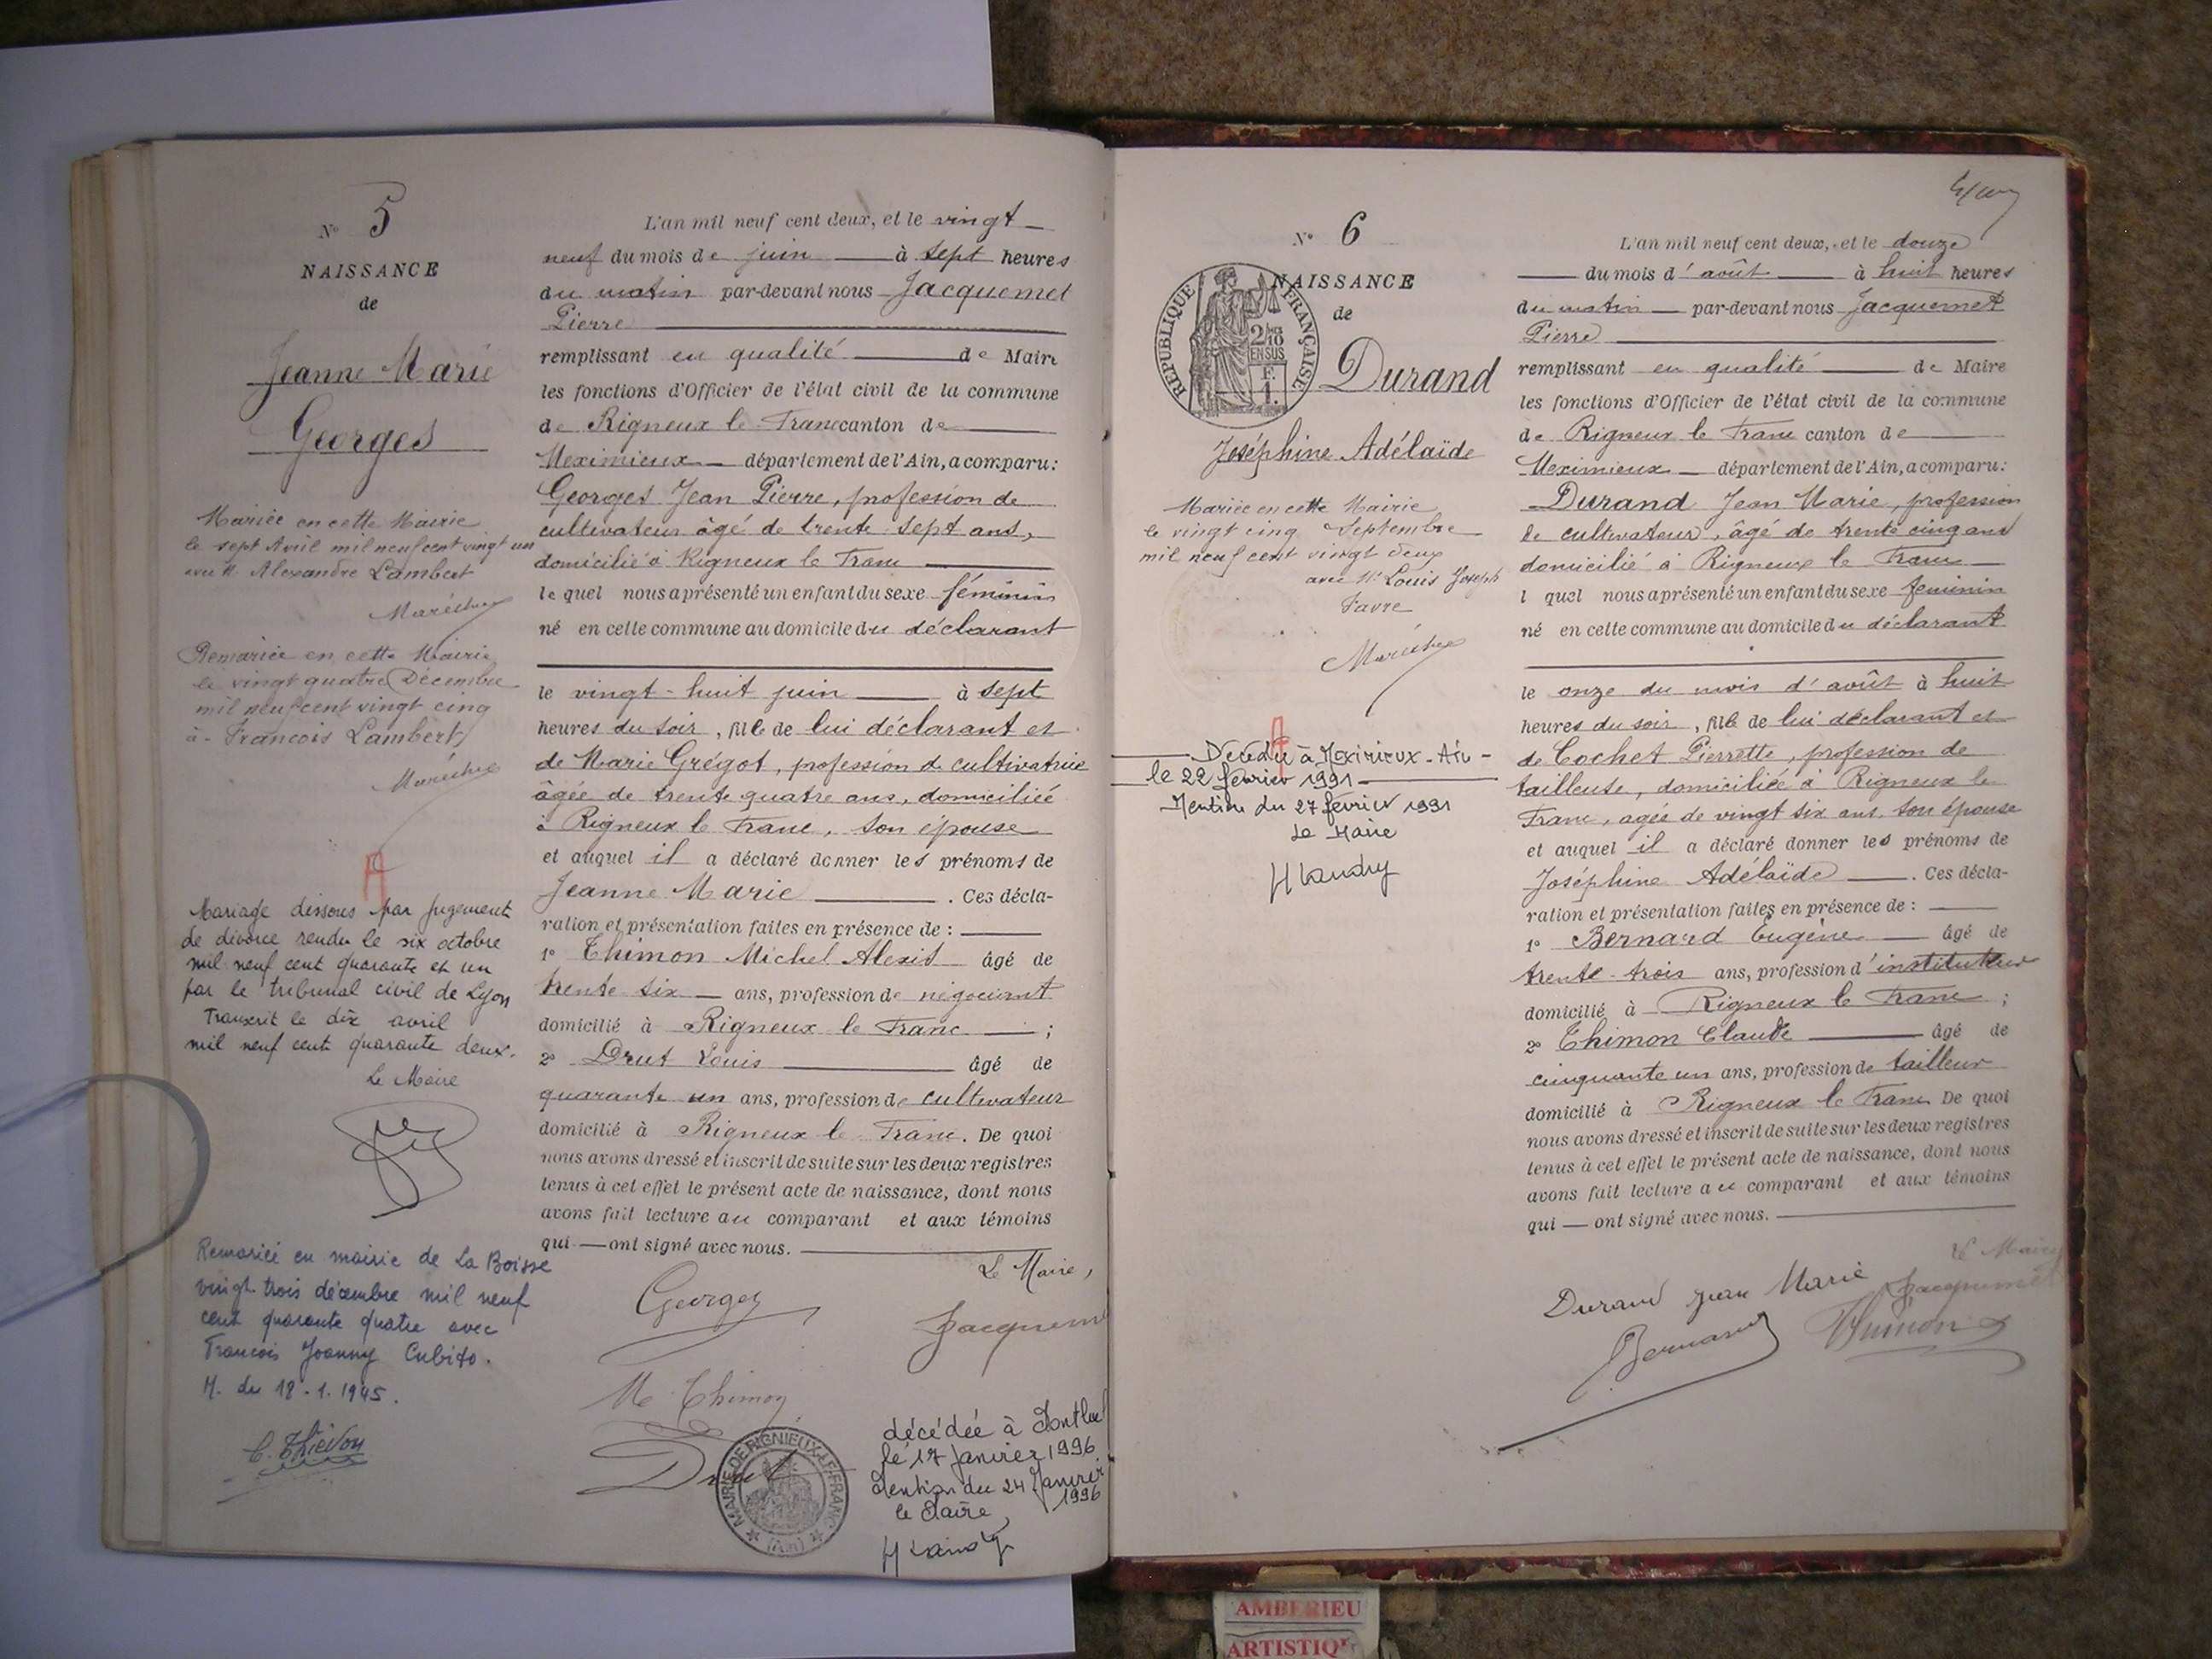 N° 5
NAISSANCE
de
Jeanne Marie
Georges
Mariée en cette Mairie
le sept Avril mil neuf cent vingt un
avec M. Alexandre Lambert
Maréchal
Remariée en cette Mairie
le vingt quatre Décembre
mil neuf cent vingt cinq
à François Lambert
Maréchal
A
Mariage dissous par jugement
de divorce rendu le six octobre
mil neuf cent quarante et un
par le tribunal civil de Lyon
Transcrit le dix avril
mil neuf cent quarante deux.
Le Maire
Remariée en mairie de La Boisse
vingt trois décembre mil neuf
cent quarante quatre avec
François Joanny Cubito.
M. du 18.1.1945.
C. Thiévon
L'an mil neuf cent deux, et le vingt
neuf du mois de juin à sept heures
du matin par-devant nous Jacquemet
Pierre
remplissant en qualité de Maire
les fonctions d'Officier de l'état civil de la commune
de Rigneux le Franc canton de
Meximieux département de l'Ain, a comparu:
Georges Jean Pierre, profession de
cultivateur âgé de trente sept ans,
domicilié à Rigneux le Franc
le quel nous a présenté un enfant du sexe féminin
né en cette commune au domicile du déclarant
le vingt-huit juin à sept
heures du soir, fille de lui déclarant et
de Marie Grégot, profession de cultivatrice
âgée de trente quatre ans, domiciliée
à Rigneux le Franc, son épouse
et auquel il a déclaré donner les prénoms de
Jeanne Marie . Ces décla-
ration et présentation faites en présence de :
1° Thimon Michel Alexis âgé de
trente six ans, profession de négociant
domicilié à Rigneux le Franc ;
2° Drut Louis âgé de
quarante un ans, profession de cultivateur
domicilié à Rigneux le Franc. De quoi
nous avons dressé et inscrit de suite sur les deux registres
tenus à cet effet le présent acte de naissance, dont nous
avons fait lecture au comparant et aux témoins
qui ont signé avec nous.
Le Maire,
Georges
Jacquem
M Thimon
Drut
MAIRIE DE RIGNIEUX-LE-FRANC
(Ain)
décédée à
le 17 Janvier 1996
Mention du 24 Janvier
1996
le Maire
H Landry
N° 6
NAISSANCE
de
RÉPUBLIQUE FRANÇAISE
2/10
EN SUS
F.
1.
Durand
Joséphine Adélaïde
Mariée en cette Mairie
le vingt cinq Septembre
mil neuf cent vingt deux
avec M. Louis Joseph
Favre
Maréchal
A
Décédée à Meximieux - Ain -
le 22 février 1991
Mention du 27 février 1991
Le Maire
H Landry
L'an mil neuf cent deux, et le douze
du mois d'août à huit heures
du matin par-devant nous Jacquemet
Pierre
remplissant en qualité de Maire
les fonctions d'Officier de l'état civil de la commune
de Rigneux le Franc canton de
Meximieux département de l'Ain, a comparu:
Durand Jean Marie, profession
de cultivateur, âgé de trente cinq ans
domicilié à Rigneux le Franc
l quel nous a présenté un enfant du sexe féminin
né en cette commune au domicile du déclarant
le onze du mois d'août à huit
heures du soir, fille de lui déclarant et
de Cochet Pierrette, profession de
tailleuse, domiciliée à Rigneux le
Franc, agée de vingt six ans, son épouse
et auquel il a déclaré donner les prénoms de
Joséphine Adélaïde . Ces décla-
ration et présentation faites en présence de :
1° Bernard Eugène âgé de
trente-trois ans, profession d'instituteur
domicilié à Rigneux le Franc ;
2° Thimon Claude âgé de
cinquante un ans, profession de tailleur
domicilié à Rigneux le Franc De quoi
nous avons dressé et inscrit de suite sur les deux registres
tenus à cet effet le présent acte de naissance, dont nous
avons fait lecture au comparant et aux témoins
qui ont signé avec nous.
Le Maire
Durand Jean Marie Jacquemet
Bernard Thimon
AMBERIEU
ARTISTIQ